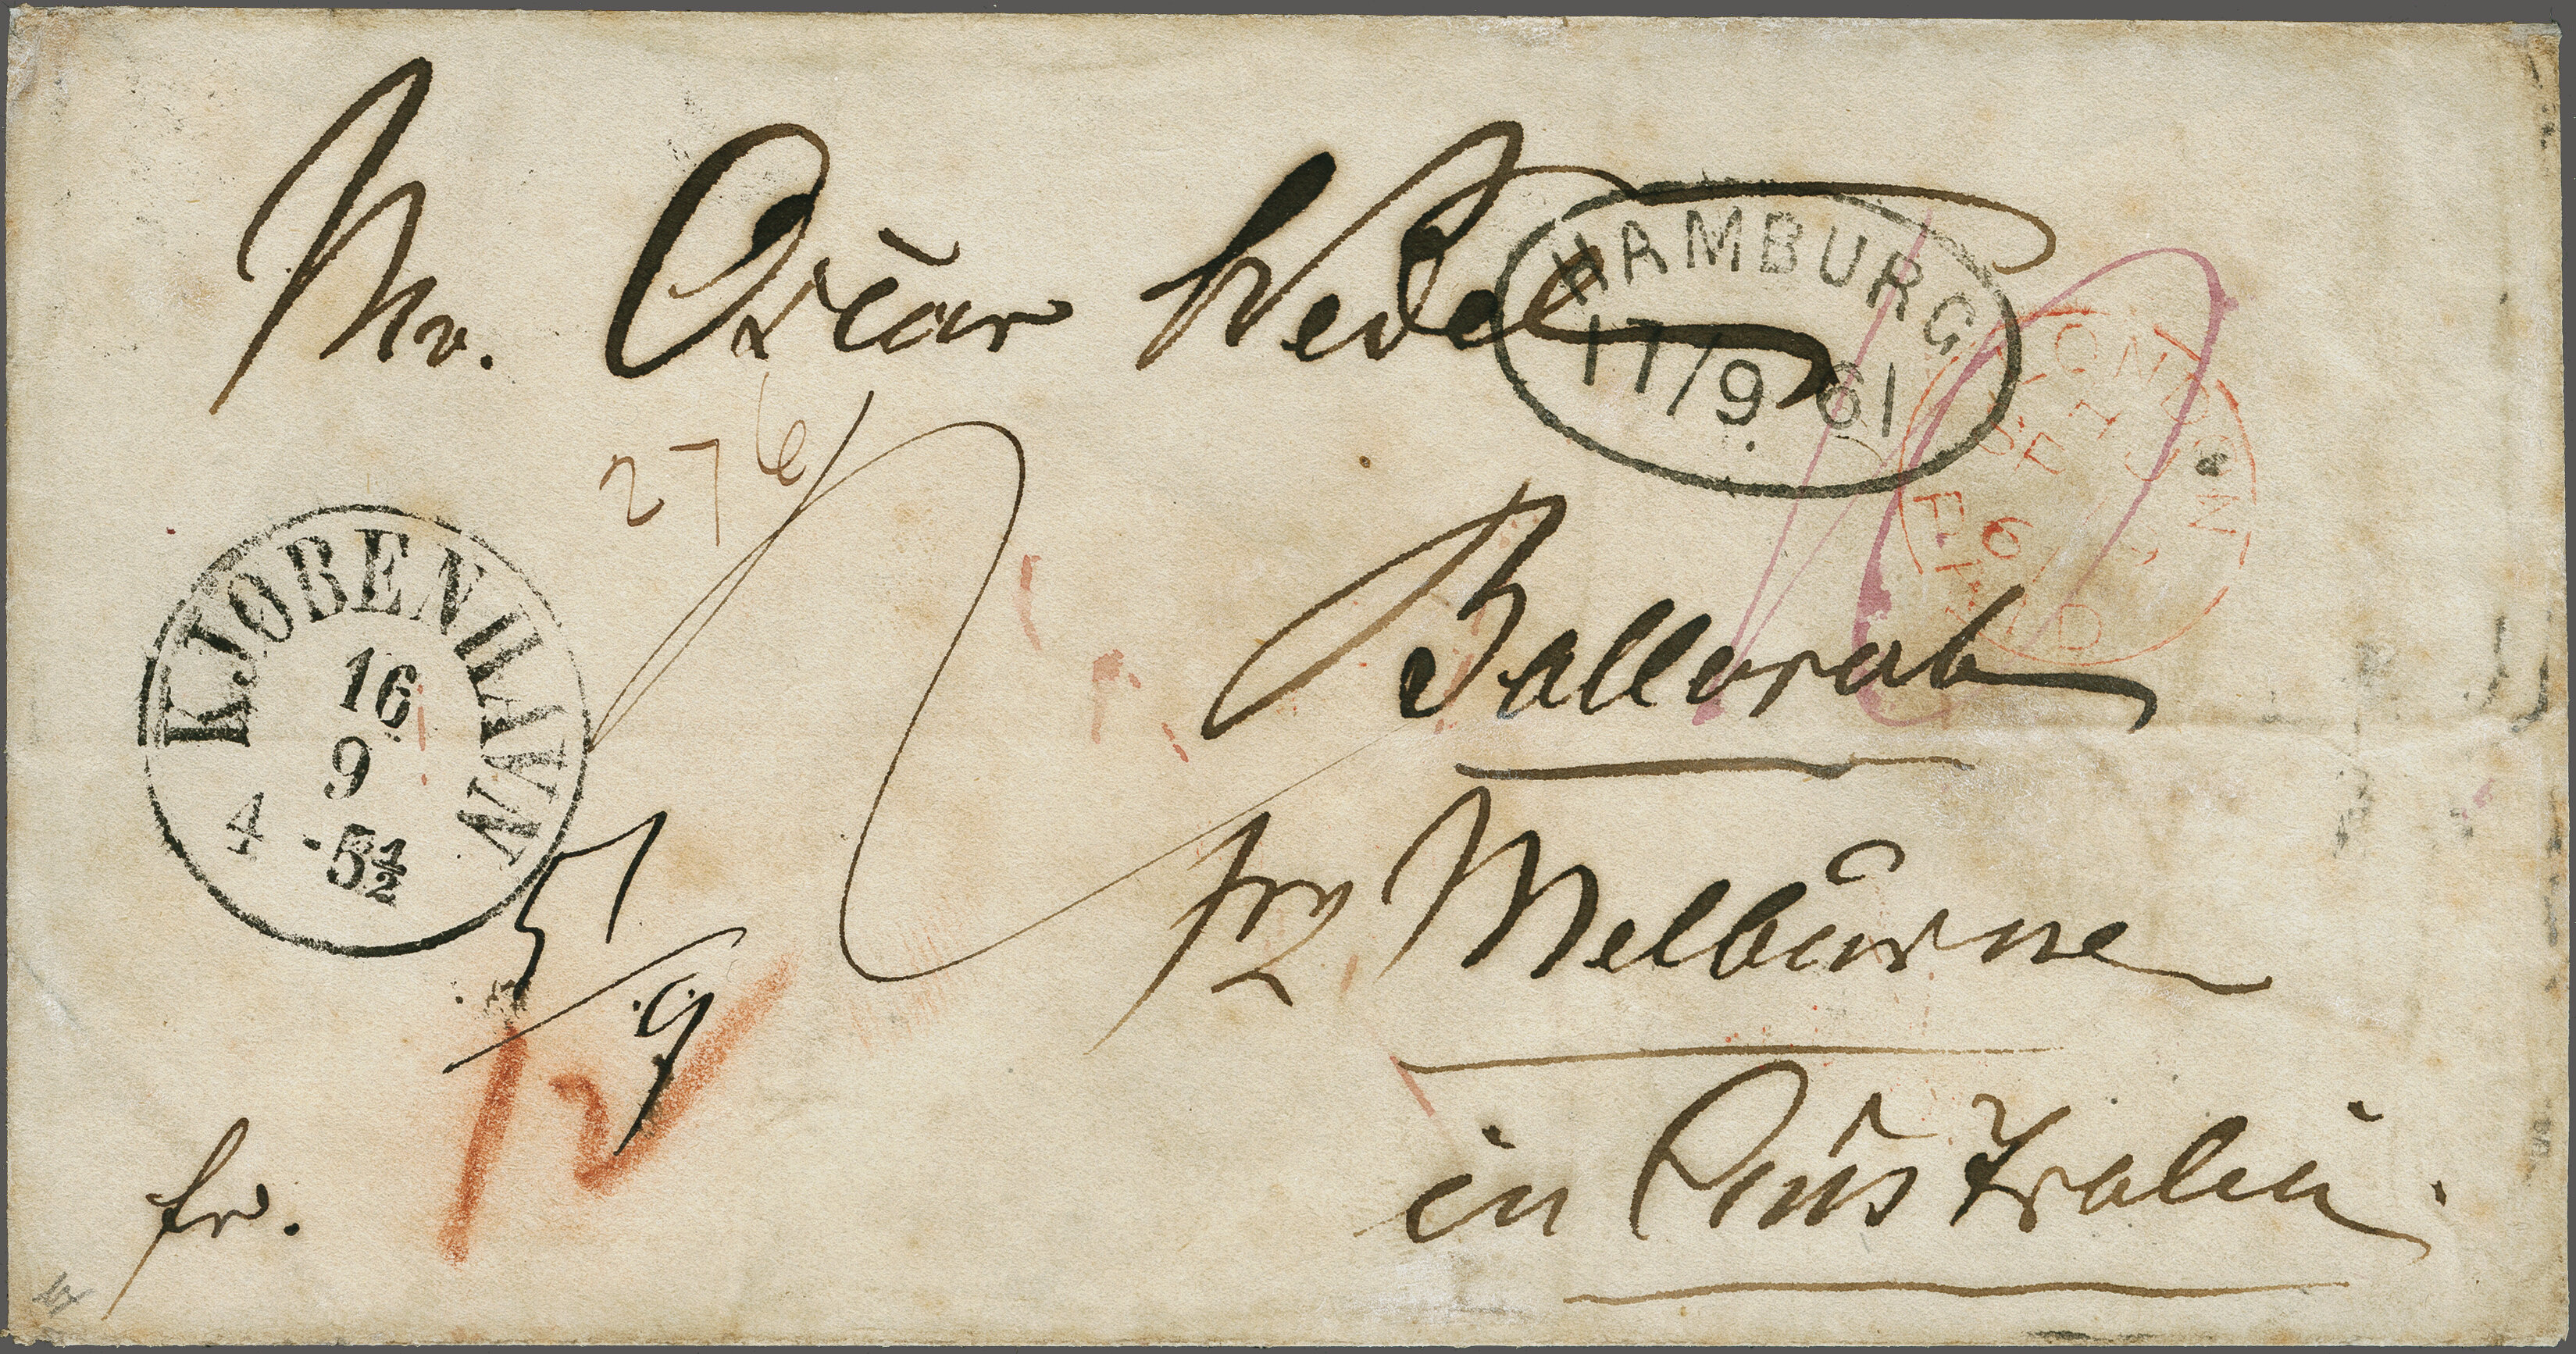 Mr. Oscar Wedel
HAMBURG
17/9 61
LONDON
SE
61
PAID
276
Ballarat
KJØBENHAVN
16
9
4 -5½
pr Melbourne
5/9
12
in Australien.
fr.